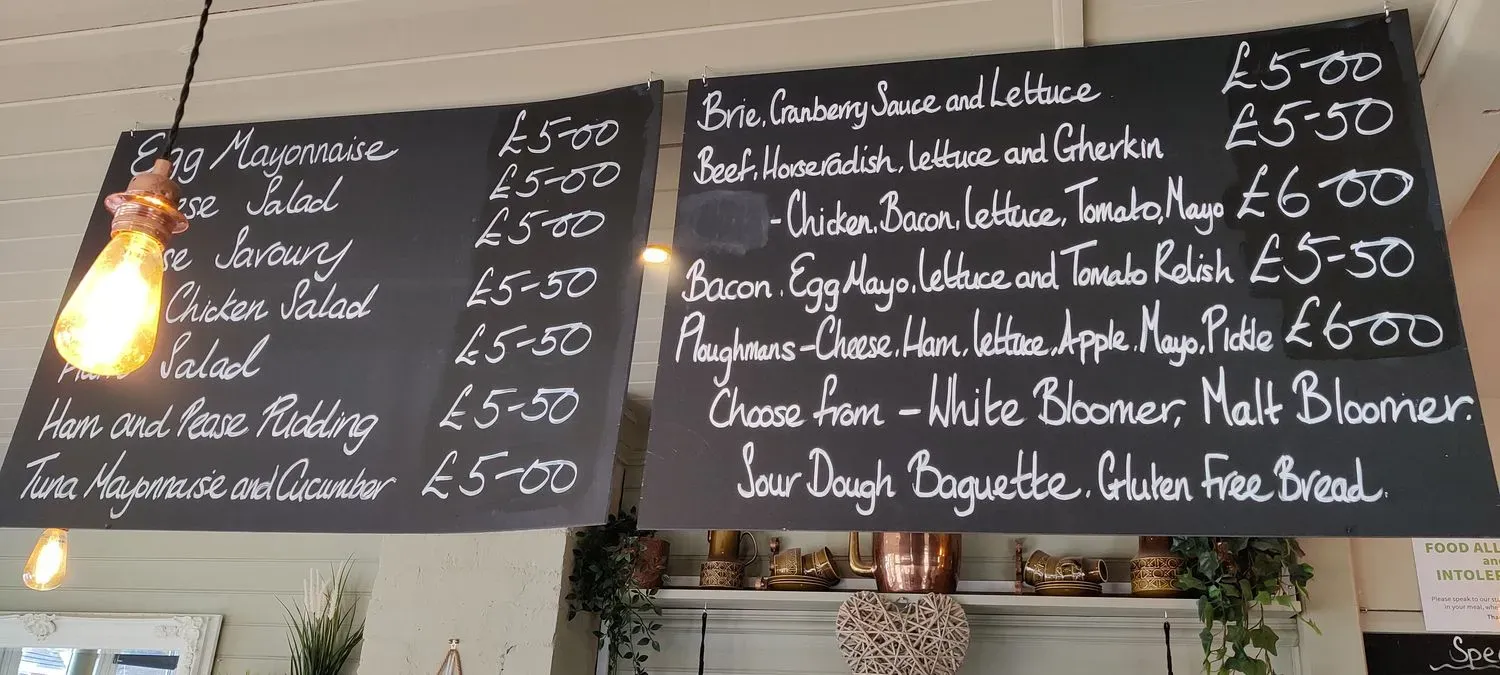 Egg Mayonnaise £5-00
Salad £5-00
Savoury £5-00
Chicken Salad £5-50
Salad £5-50
Ham and Pease Pudding £5-50
Tuna Mayonnaise and Cucumber £5-00
Brie, Cranberry Sauce and Lettuce £5-00
Beef, Horseradish, lettuce and Gherkin £5-50
- Chicken, Bacon, lettuce, Tomato, Mayo £6-00
Bacon, Egg Mayo, lettuce and Tomato Relish £5-50
Ploughmans - Cheese, Ham, lettuce, Apple, Mayo, Pickle £6-00
Choose from - White Bloomer, Malt Bloomer.
Sour Dough Baguette. Gluten Free Bread.
FOOD
INTOLE
Please speak to our
in your meal,
Spe